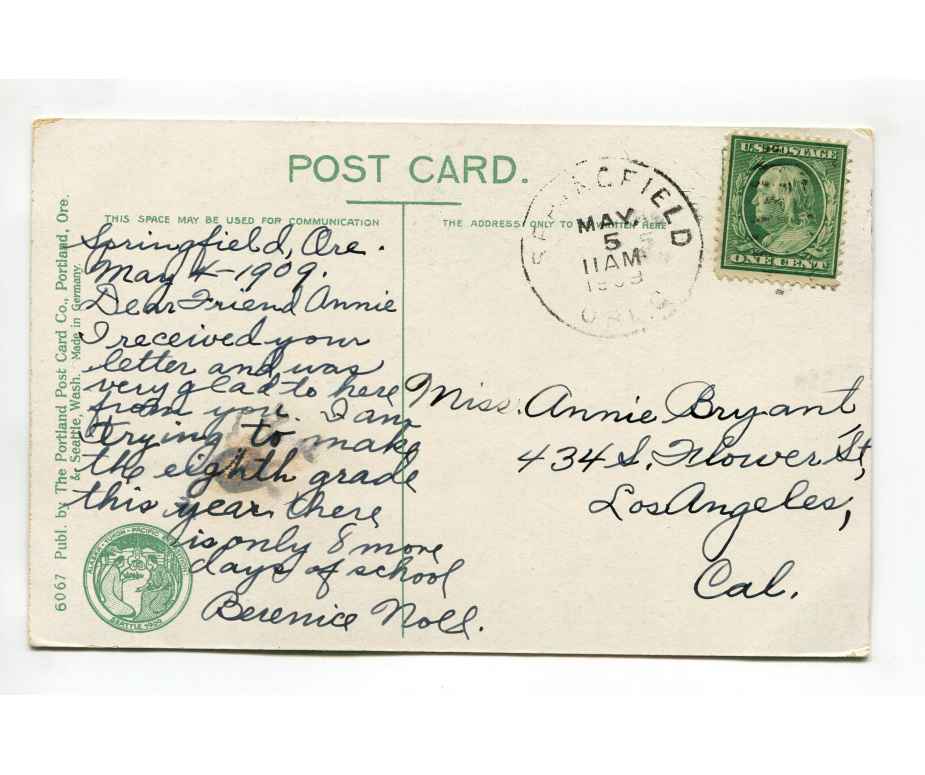 POST CARD.
THIS SPACE MAY BE USED FOR COMMUNICATION
THE ADDRESS ONLY TO BE WRITTEN HERE
SPRINGFIELD
MAY
5
11 AM
1909
ORE.
U.S. POSTAGE
ONE CENT
Springfield, Ore.
May 4-1909.
Dear Friend Annie
I received your
letter and was
very glad to here
from you. I am
trying to make
the eighth grade
this year there
is only 8 more
days of school
Berenice Noll.
Miss. Annie Bryant,
434 S. Flower St,
Los Angeles,
Cal.
6067 Publ. by The Portland Post Card Co., Portland, Ore.
& Seattle, Wash. Made in Germany.
ALASKA · YUKON · PACIFIC EXPOSITION
SEATTLE 1909